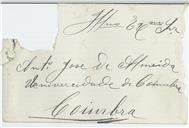 Illmo Exmo Snr
Antº José de Almeida
Universidade de Coimbra
Coimbra